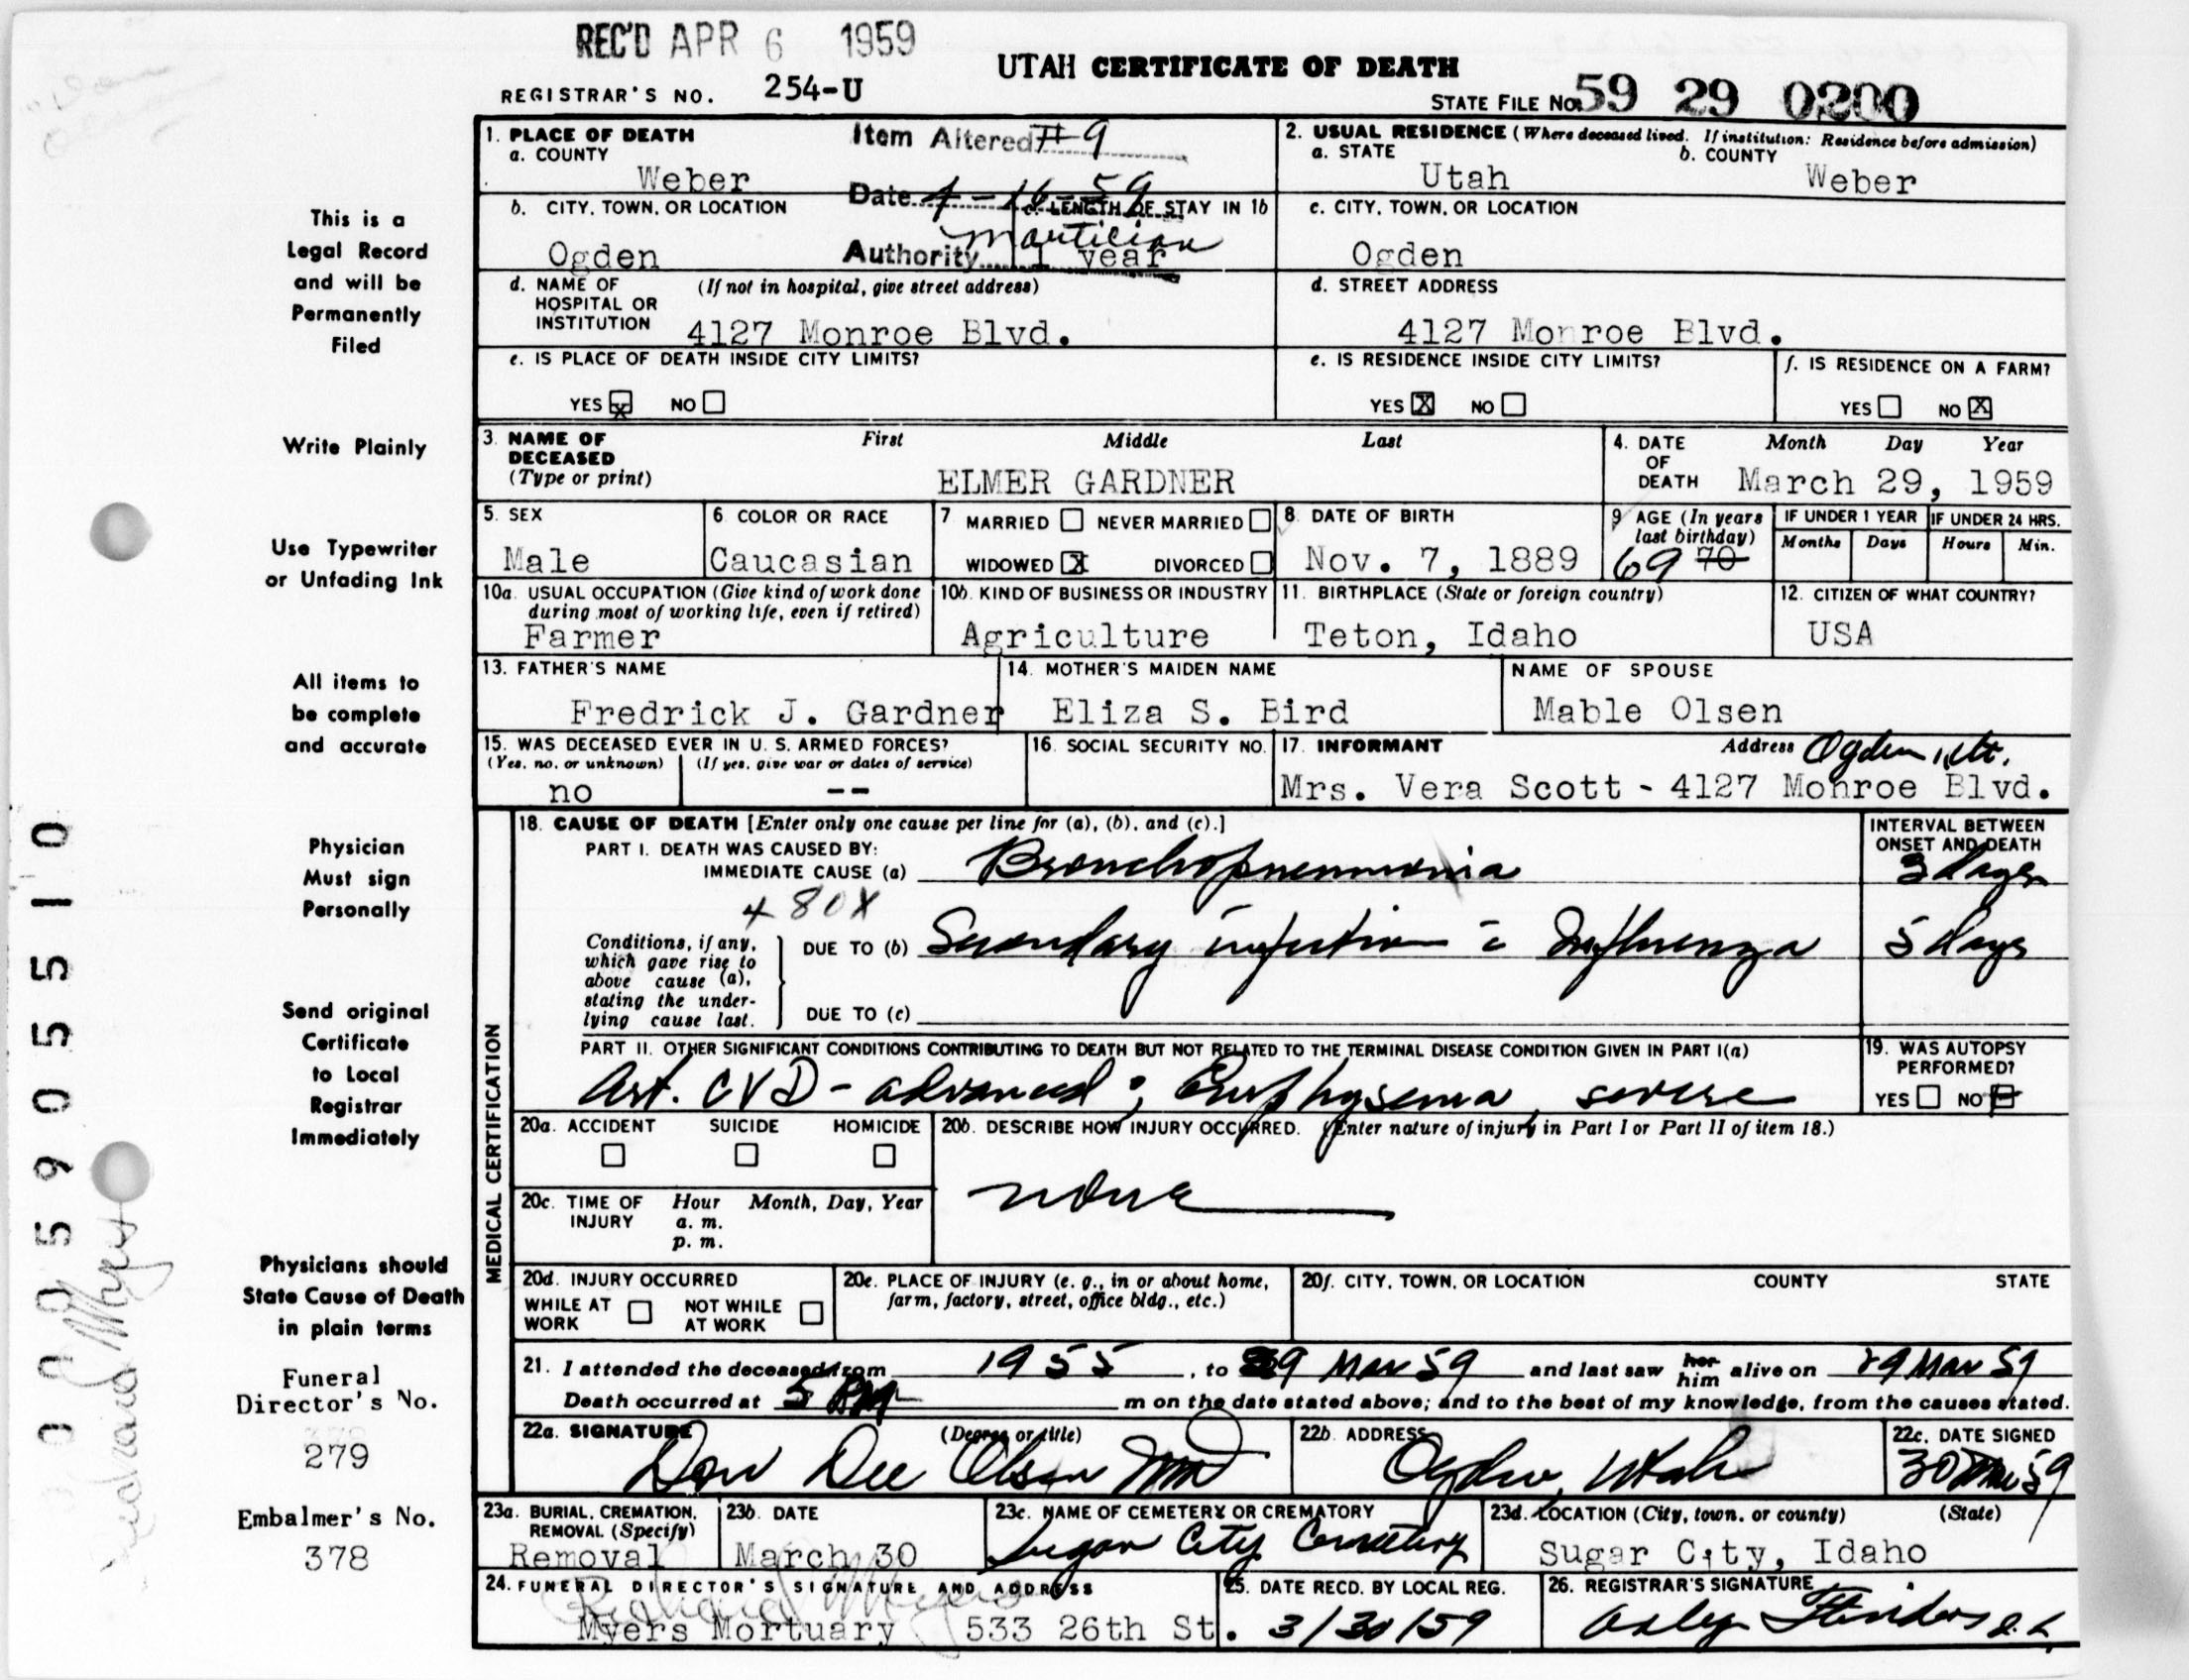 REC'D APR 6 1959
UTAH CERTIFICATE OF DEATH
REGISTRAR'S NO. 254-U
STATE FILE NO. 59 29 0200
This is a
Legal Record
and will be
Permanently
Filed
Write Plainly
Use Typewriter
or Unfading Ink
All items to
be complete
and accurate
Physician
Must sign
Personally
Send original
Certificate
to Local
Registrar
Immediately
Physicians should
State Cause of Death
in plain terms
Funeral
Director's No.
279
Embalmer's No.
378
1. PLACE OF DEATH
a. COUNTY
Weber
Item Altered #9
Date 4-16-59
Authority Mortician
2. USUAL RESIDENCE (Where deceased lived. If institution: Residence before admission)
a. STATE
Utah
b. COUNTY
Weber
b. CITY, TOWN, OR LOCATION
Ogden
c. LENGTH OF STAY IN 1b
1 year
c. CITY, TOWN, OR LOCATION
Ogden
d. NAME OF HOSPITAL OR INSTITUTION (If not in hospital, give street address)
4127 Monroe Blvd.
d. STREET ADDRESS
4127 Monroe Blvd.
e. IS PLACE OF DEATH INSIDE CITY LIMITS?
YES X NO
e. IS RESIDENCE INSIDE CITY LIMITS?
YES X NO
f. IS RESIDENCE ON A FARM?
YES NO X
3. NAME OF DECEASED (Type or print)
First Middle Last
ELMER GARDNER
4. DATE OF DEATH
Month Day Year
March 29, 1959
5. SEX
Male
6. COLOR OR RACE
Caucasian
7. MARRIED NEVER MARRIED
WIDOWED X DIVORCED
8. DATE OF BIRTH
Nov. 7, 1889
9. AGE (In years last birthday)
69 70
IF UNDER 1 YEAR
Months Days
IF UNDER 24 HRS.
Hours Min.
10a. USUAL OCCUPATION (Give kind of work done during most of working life, even if retired)
Farmer
10b. KIND OF BUSINESS OR INDUSTRY
Agriculture
11. BIRTHPLACE (State or foreign country)
Teton, Idaho
12. CITIZEN OF WHAT COUNTRY?
USA
13. FATHER'S NAME
Fredrick J. Gardner
14. MOTHER'S MAIDEN NAME
Eliza S. Bird
NAME OF SPOUSE
Mable Olsen
15. WAS DECEASED EVER IN U. S. ARMED FORCES?
(Yes, no, or unknown) (If yes, give war or dates of service)
no --
16. SOCIAL SECURITY NO.
17. INFORMANT Address Ogden, Ut.
Mrs. Vera Scott - 4127 Monroe Blvd.
MEDICAL CERTIFICATION
18. CAUSE OF DEATH [Enter only one cause per line for (a), (b), and (c).]
INTERVAL BETWEEN ONSET AND DEATH
PART I. DEATH WAS CAUSED BY:
IMMEDIATE CAUSE (a) Bronchopneumonia 3 days
480X
Conditions, if any, which gave rise to above cause (a), stating the underlying cause last.
DUE TO (b) Secondary infection c̄ Influenza 5 days
DUE TO (c)
PART II. OTHER SIGNIFICANT CONDITIONS CONTRIBUTING TO DEATH BUT NOT RELATED TO THE TERMINAL DISEASE CONDITION GIVEN IN PART I(a)
Art. CVD - advanced; Emphysema, severe
19. WAS AUTOPSY PERFORMED?
YES NO
20a. ACCIDENT SUICIDE HOMICIDE
20b. DESCRIBE HOW INJURY OCCURRED. (Enter nature of injury in Part I or Part II of item 18.)
none
20c. TIME OF INJURY
Hour Month, Day, Year
a. m.
p. m.
20d. INJURY OCCURRED
WHILE AT WORK NOT WHILE AT WORK
20e. PLACE OF INJURY (e. g., in or about home, farm, factory, street, office bldg., etc.)
20f. CITY, TOWN, OR LOCATION COUNTY STATE
21. I attended the deceased from 1955, to 29 Mar 59 and last saw her him alive on 29 Mar 59
Death occurred at 5 PM m on the date stated above; and to the best of my knowledge, from the causes stated.
22a. SIGNATURE (Degree or title)
Don Dee Olsen MD
22b. ADDRESS
Ogden, Utah
22c. DATE SIGNED
30 Mar 59
23a. BURIAL, CREMATION, REMOVAL (Specify)
Removal
23b. DATE
March 30
23c. NAME OF CEMETERY OR CREMATORY
Sugar City Cemetery
23d. LOCATION (City, town, or county) (State)
Sugar City, Idaho
24. FUNERAL DIRECTOR'S SIGNATURE AND ADDRESS
Richard Myers
Myers Mortuary 533 26th St.
25. DATE RECD. BY LOCAL REG.
3/30/59
26. REGISTRAR'S SIGNATURE
0005905510
Richard Myers